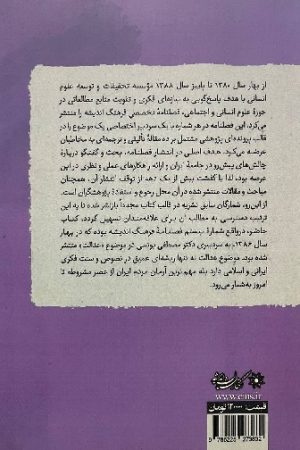 از بهار سال ۱۳۸۰ تا پاییز سال ۱۳۸۸ مؤسسه تحقیقات و توسعه علوم
انسانی با هدف پاسخ‌گویی به نیازهای فکری و تقویت منابع مطالعاتی در
حوزهٔ علوم انسانی و اجتماعی، فصلنامهٔ تخصصی فرهنگ اندیشه را منتشر
می‌کرد. این فصلنامه در هر شماره با یک سردبیر اختصاصی یک موضوع را در
قالب پرونده‌ای پژوهشی مشتمل بر مقالات تألیفی و ترجمه‌ای به مخاطبان
عرضه می‌کرد. هدف اصلی در انتشار فصلنامه، بحث و گفتگو دربارهٔ
چالش‌های پیش‌رو در جامعهٔ ایران و ارائهٔ راهکارهای عملی و نظری در این
عرصه بود. لذا با گذشت بیش از یک دهه از توقف انتشار آن، همچنان
مباحث و مقالات منتشر شده در آن محل رجوع و استفادهٔ پژوهشگران است.
از این‌رو، شمارگان سابق نشریه در قالب کتاب مجدداً بازنشر شده تا به این
ترتیب دسترسی به مطالب آن برای علاقه‌مندان تسهیل گردد. کتاب
حاضر، درواقع شمارهٔ بیستم فصلنامهٔ فرهنگ اندیشه بوده که در بهار
سال ۱۳۸۶، به سردبیری دکتر مصطفی یونسی در موضوع «عدالت» منتشر
شده بود. موضوع عدالت نه تنها ریشه‌ای عمیق در نصوص و سنت فکری
ایرانی و اسلامی دارد بلکه مهم‌ترین آرمان مردم ایران از عصر مشروطه تا
امروز به‌شمار می‌رود.
قیمت: ۱۲۰۰۰۰ تومان